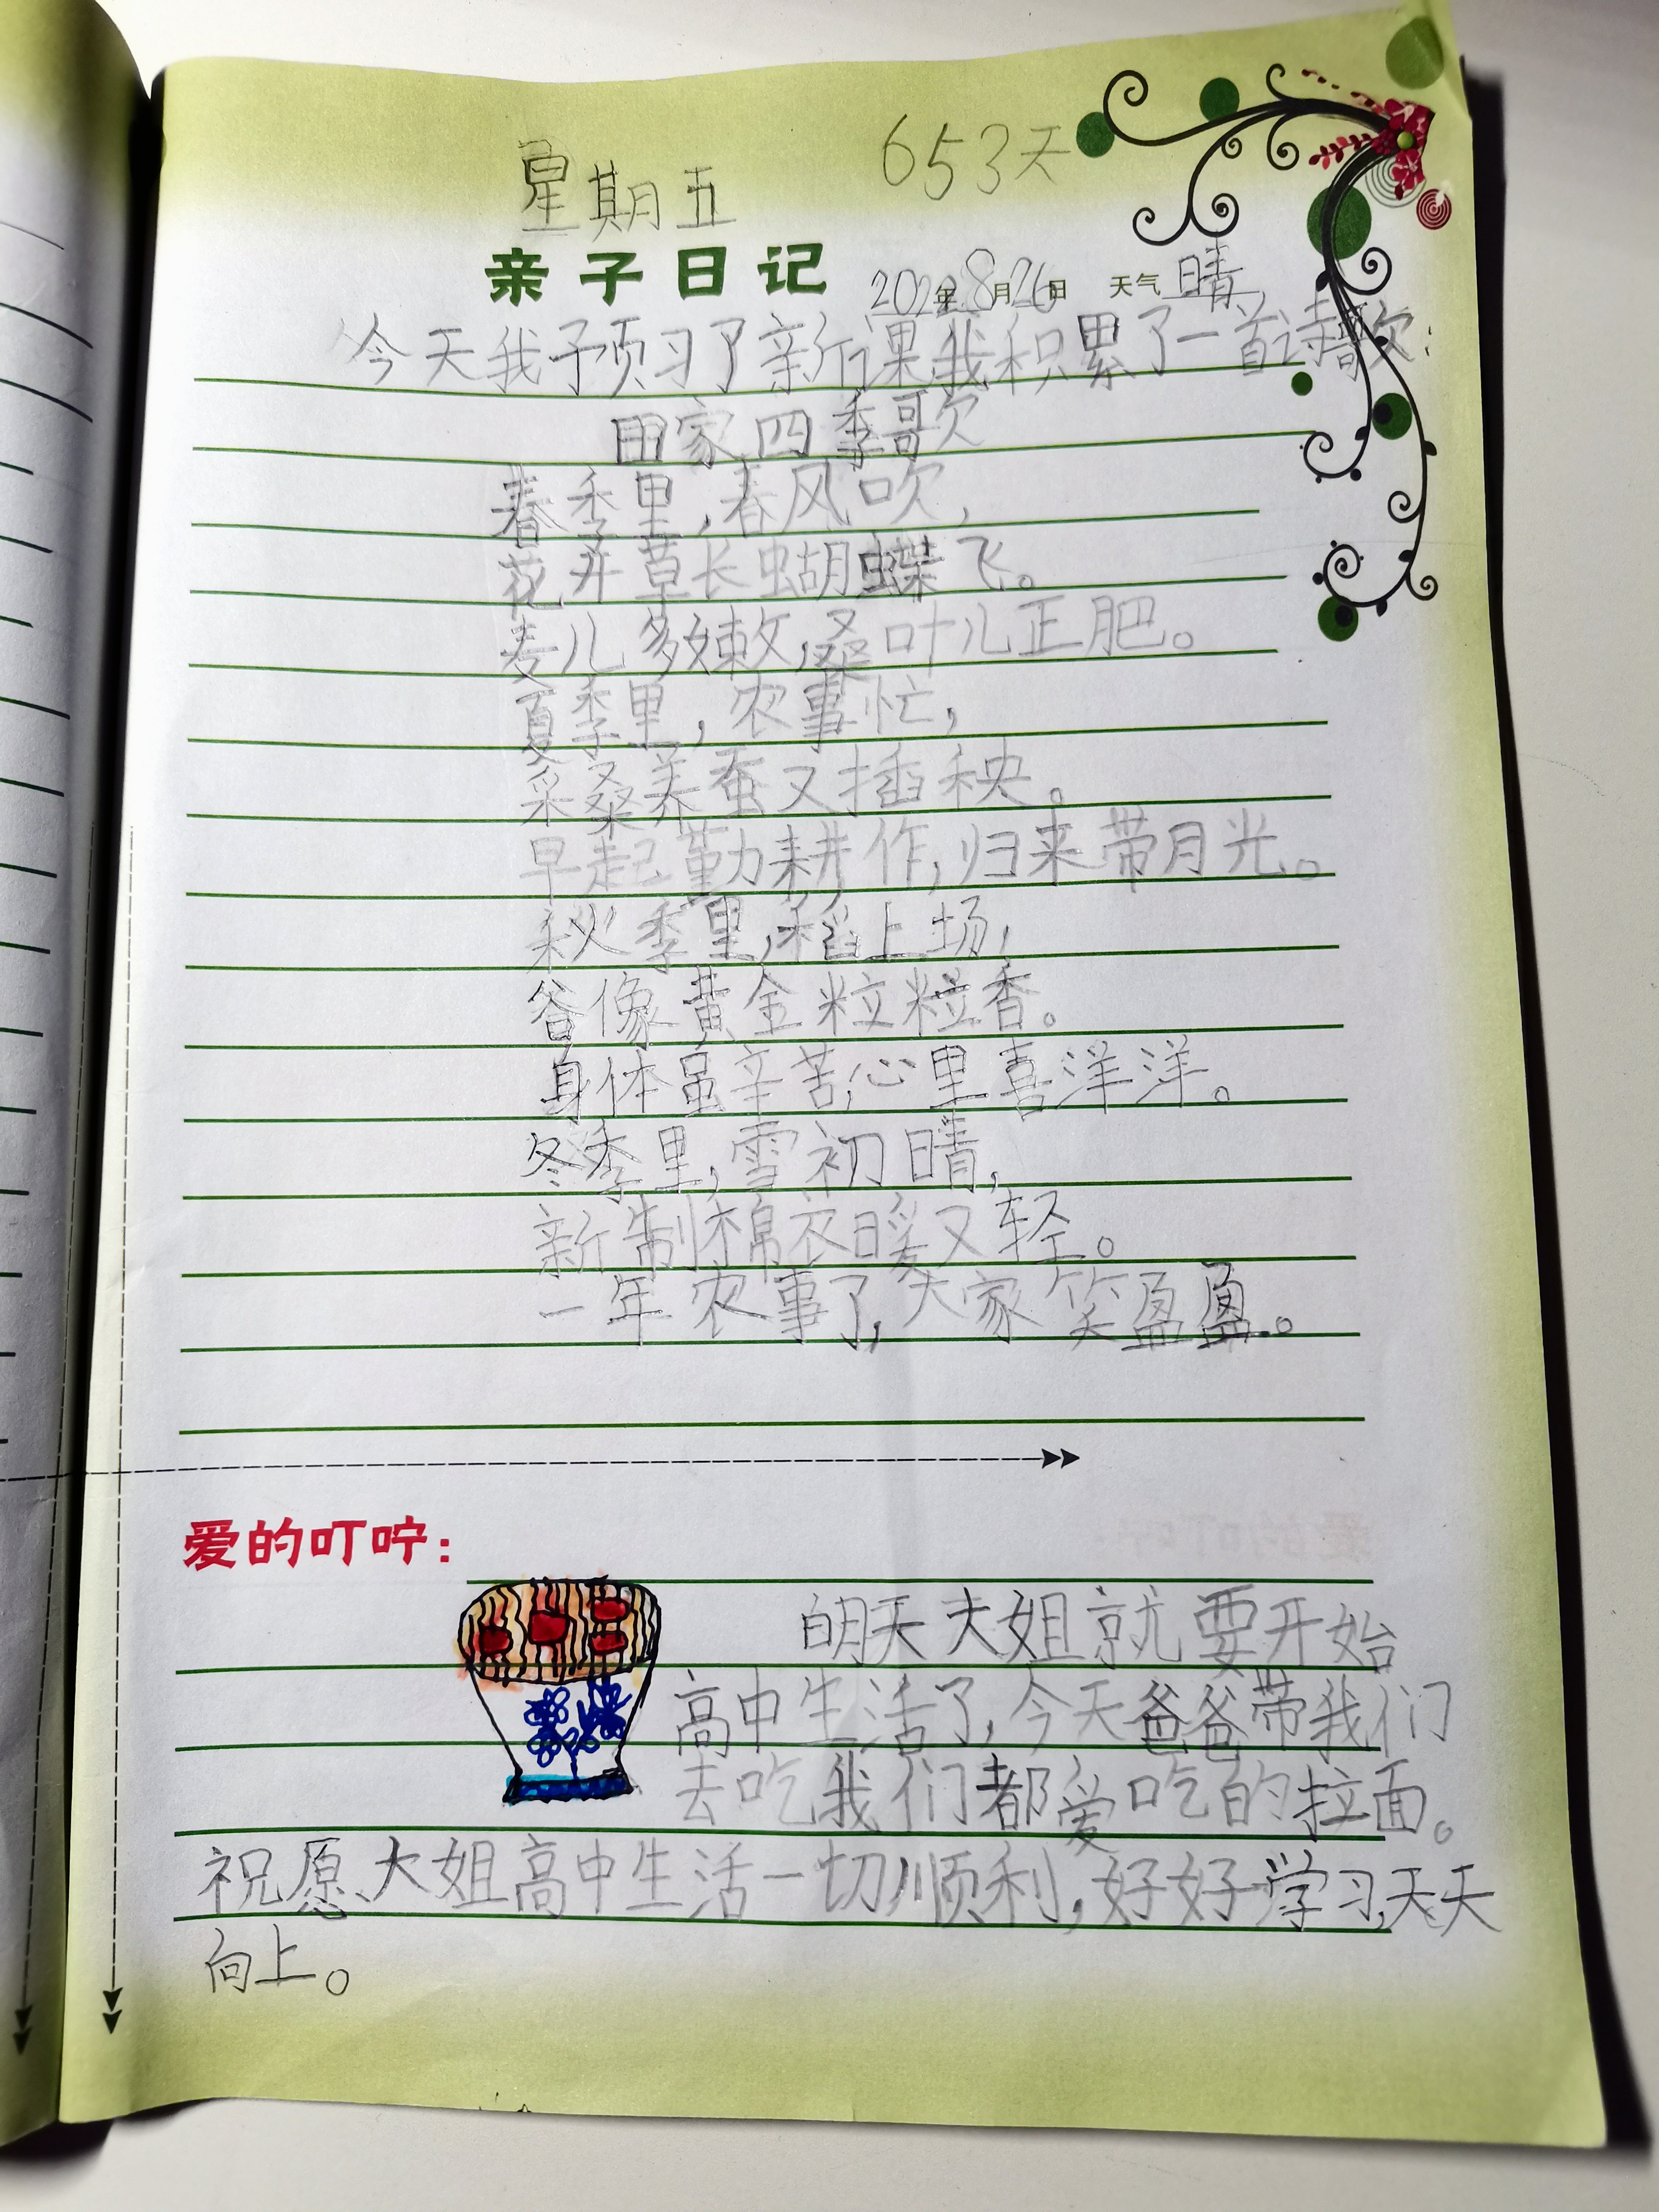 星期五 653天
亲子日记 2022年8月26日 天气晴
今天我予预习了新课我积累了一首诗歌:
田家四季歌
春季里,春风吹,
花开草长蝴蝶飞。
麦儿多嫩,桑叶儿正肥。
夏季里,农事忙,
采桑养蚕又插秧。
早起勤耕作,归来带月光。
秋季里,稻上场,
谷像黄金粒粒香。
身体虽辛苦,心里喜洋洋。
冬季里,雪初晴,
新制棉衣暖又轻。
一年农事了,大家笑盈盈。
爱的叮咛:
明天大姐就要开始
高中生活了,今天爸爸带我们
去吃我们都爱吃的拉面。
祝愿大姐高中生活一切顺利,好好学习,天天
向上。